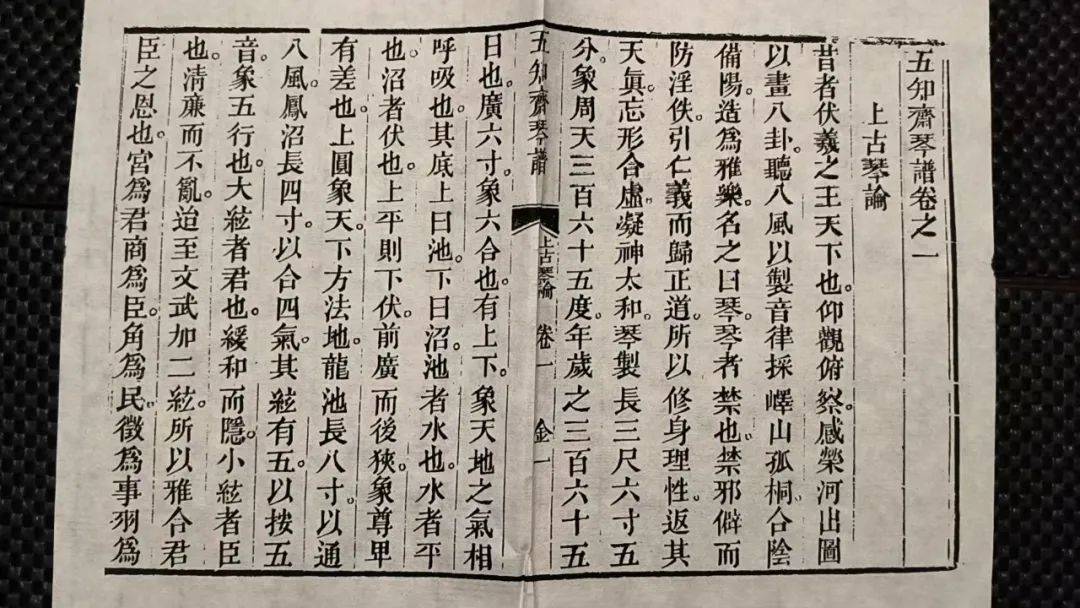 五知齋琴譜卷之一
上古琴論
昔者伏羲之王天下也。仰觀俯察。感榮河出圖
以畫八卦。聽八風以製音律採嶧山孤桐。合陰
備陽。造爲雅樂。名之曰琴。琴者禁也。禁邪僻而
防淫佚。引仁義而歸正道。所以修身理性。返其
天眞。忘形合虛。凝神太和。琴製長三尺六寸五
分。象周天三百六十五度。年歲之三百六十五
五知齋琴譜
上古琴論
卷一
金一
日也。廣六寸。象六合也。有上下。象天地之氣相
呼吸也。其底上曰池。下曰沼。池者水也。水者平
也。沼者伏也。上平則下伏。前廣而後狹。象尊卑
有差也。上圓象天。下方法地。龍池長八寸。以通
八風。鳳沼長四寸。以合四氣。其絃有五。以按五
音。象五行也。大絃者君也。緩和而隱。小絃者臣
也。清廉而不亂。迨至文武加二絃。所以雅合君
臣之恩也。宮爲君。商爲臣。角爲民。徵爲事。羽爲